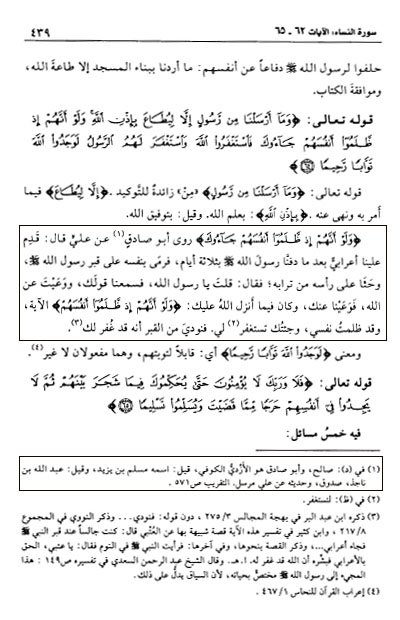 سورة النساء: الآيات ٦٢ - ٦٥
٤٣٩
حلفوا لرسول الله ﷺ دفاعاً عن أنفسهم: ما أردنا ببناء المسجد إلا طاعةَ الله،
وموافقةَ الكتاب.
قوله تعالى: ﴿وَمَآ أَرْسَلْنَا مِن رَّسُولٍ إِلَّا لِيُطَاعَ بِإِذْنِ ٱللَّهِ وَلَوْ أَنَّهُمْ إِذ
ظَّلَمُوٓا۟ أَنفُسَهُمْ جَآءُوكَ فَٱسْتَغْفَرُوا۟ ٱللَّهَ وَٱسْتَغْفَرَ لَهُمُ ٱلرَّسُولُ لَوَجَدُوا۟ ٱللَّهَ
تَوَّابًا رَّحِيمًا ﴿٦٤﴾﴾
قوله تعالى: ﴿وَمَآ أَرْسَلْنَا مِن رَّسُولٍ﴾ «مِنْ» زائدةٌ للتوكيد. ﴿إِلَّا لِيُطَاعَ﴾ فيما
أَمر به ونهى عنه. ﴿بِإِذْنِ ٱللَّهِ﴾: بعلم الله. وقيل: بتوفيق الله.
﴿وَلَوْ أَنَّهُمْ إِذ ظَّلَمُوٓا۟ أَنفُسَهُمْ جَآءُوكَ﴾ روى أبو صادقٍ(١) عن عليٍّ قال: قَدِم
علينا أعرابيٌّ بعد ما دفنَّا رسولَ الله ﷺ بثلاثة أيام، فرمَى بنفسه على قبر رسول الله ﷺ،
وحَثَا على رأسه من ترابه؛ فقال: قلتَ يا رسول الله، فسمعنا قولَك، ووَعَيْتَ عن
الله، فوَعَيْنا عنك، وكان فيما أَنزل اللهُ عليك: ﴿وَلَوْ أَنَّهُمْ إِذ ظَّلَمُوٓا۟ أَنفُسَهُمْ﴾ الآية،
وقد ظلمتُ نفسي، وجئتُك تستغفر(٢) لي. فنوديَ من القبر أنه قد غُفر لك(٣).
ومعنى ﴿لَوَجَدُوا۟ ٱللَّهَ تَوَّابًا رَّحِيمًا﴾ أي: قابلاً لتوبتهم، وهما مفعولان لا غير(٤).
قوله تعالى: ﴿فَلَا وَرَبِّكَ لَا يُؤْمِنُونَ حَتَّىٰ يُحَكِّمُوكَ فِيمَا شَجَرَ بَيْنَهُمْ ثُمَّ لَا
يَجِدُوا۟ فِىٓ أَنفُسِهِمْ حَرَجًا مِّمَّا قَضَيْتَ وَيُسَلِّمُوا۟ تَسْلِيمًا ﴿٦٥﴾﴾
فيه خمسُ مسائل:
(١) في (د): صالح، وأبو صادق هو الأزديُّ الكوفي، قيل: اسمه مسلم بن يزيد، وقيل: عبد الله بن
ناجذ، صدوق، وحديثه عن علي مرسل. التقريب ص٥٧١.
(٢) في (ظ): لتستغفر.
(٣) ذكره ابن عبد البر في بهجة المجالس ٢٧٥/٣، دون قوله: فنودي... وذكر النووي في المجموع
٢١٧/٨، وابن كثير في تفسير هذه الآية قصة شبيهة بها عن العُتْبي قال: كنت جالساً عند قبر النبي ﷺ
فجاء أعرابي...، وذكر القصة بنحوها، وفي آخرها: فرأيت النبي ﷺ في النوم فقال: يا عتبي، الحق
بالأعرابي فبشِّره أن الله قد غفر له. ا.هـ. وقال الشيخ عبد الرحمن السعدي في تفسيره ص١٤٩ : هذا
المجيء إلى رسول الله ﷺ مختصٌّ بحياته، لأن السياق يدل على ذلك.
(٤) إعراب القرآن للنحاس ٤٦٧/١.